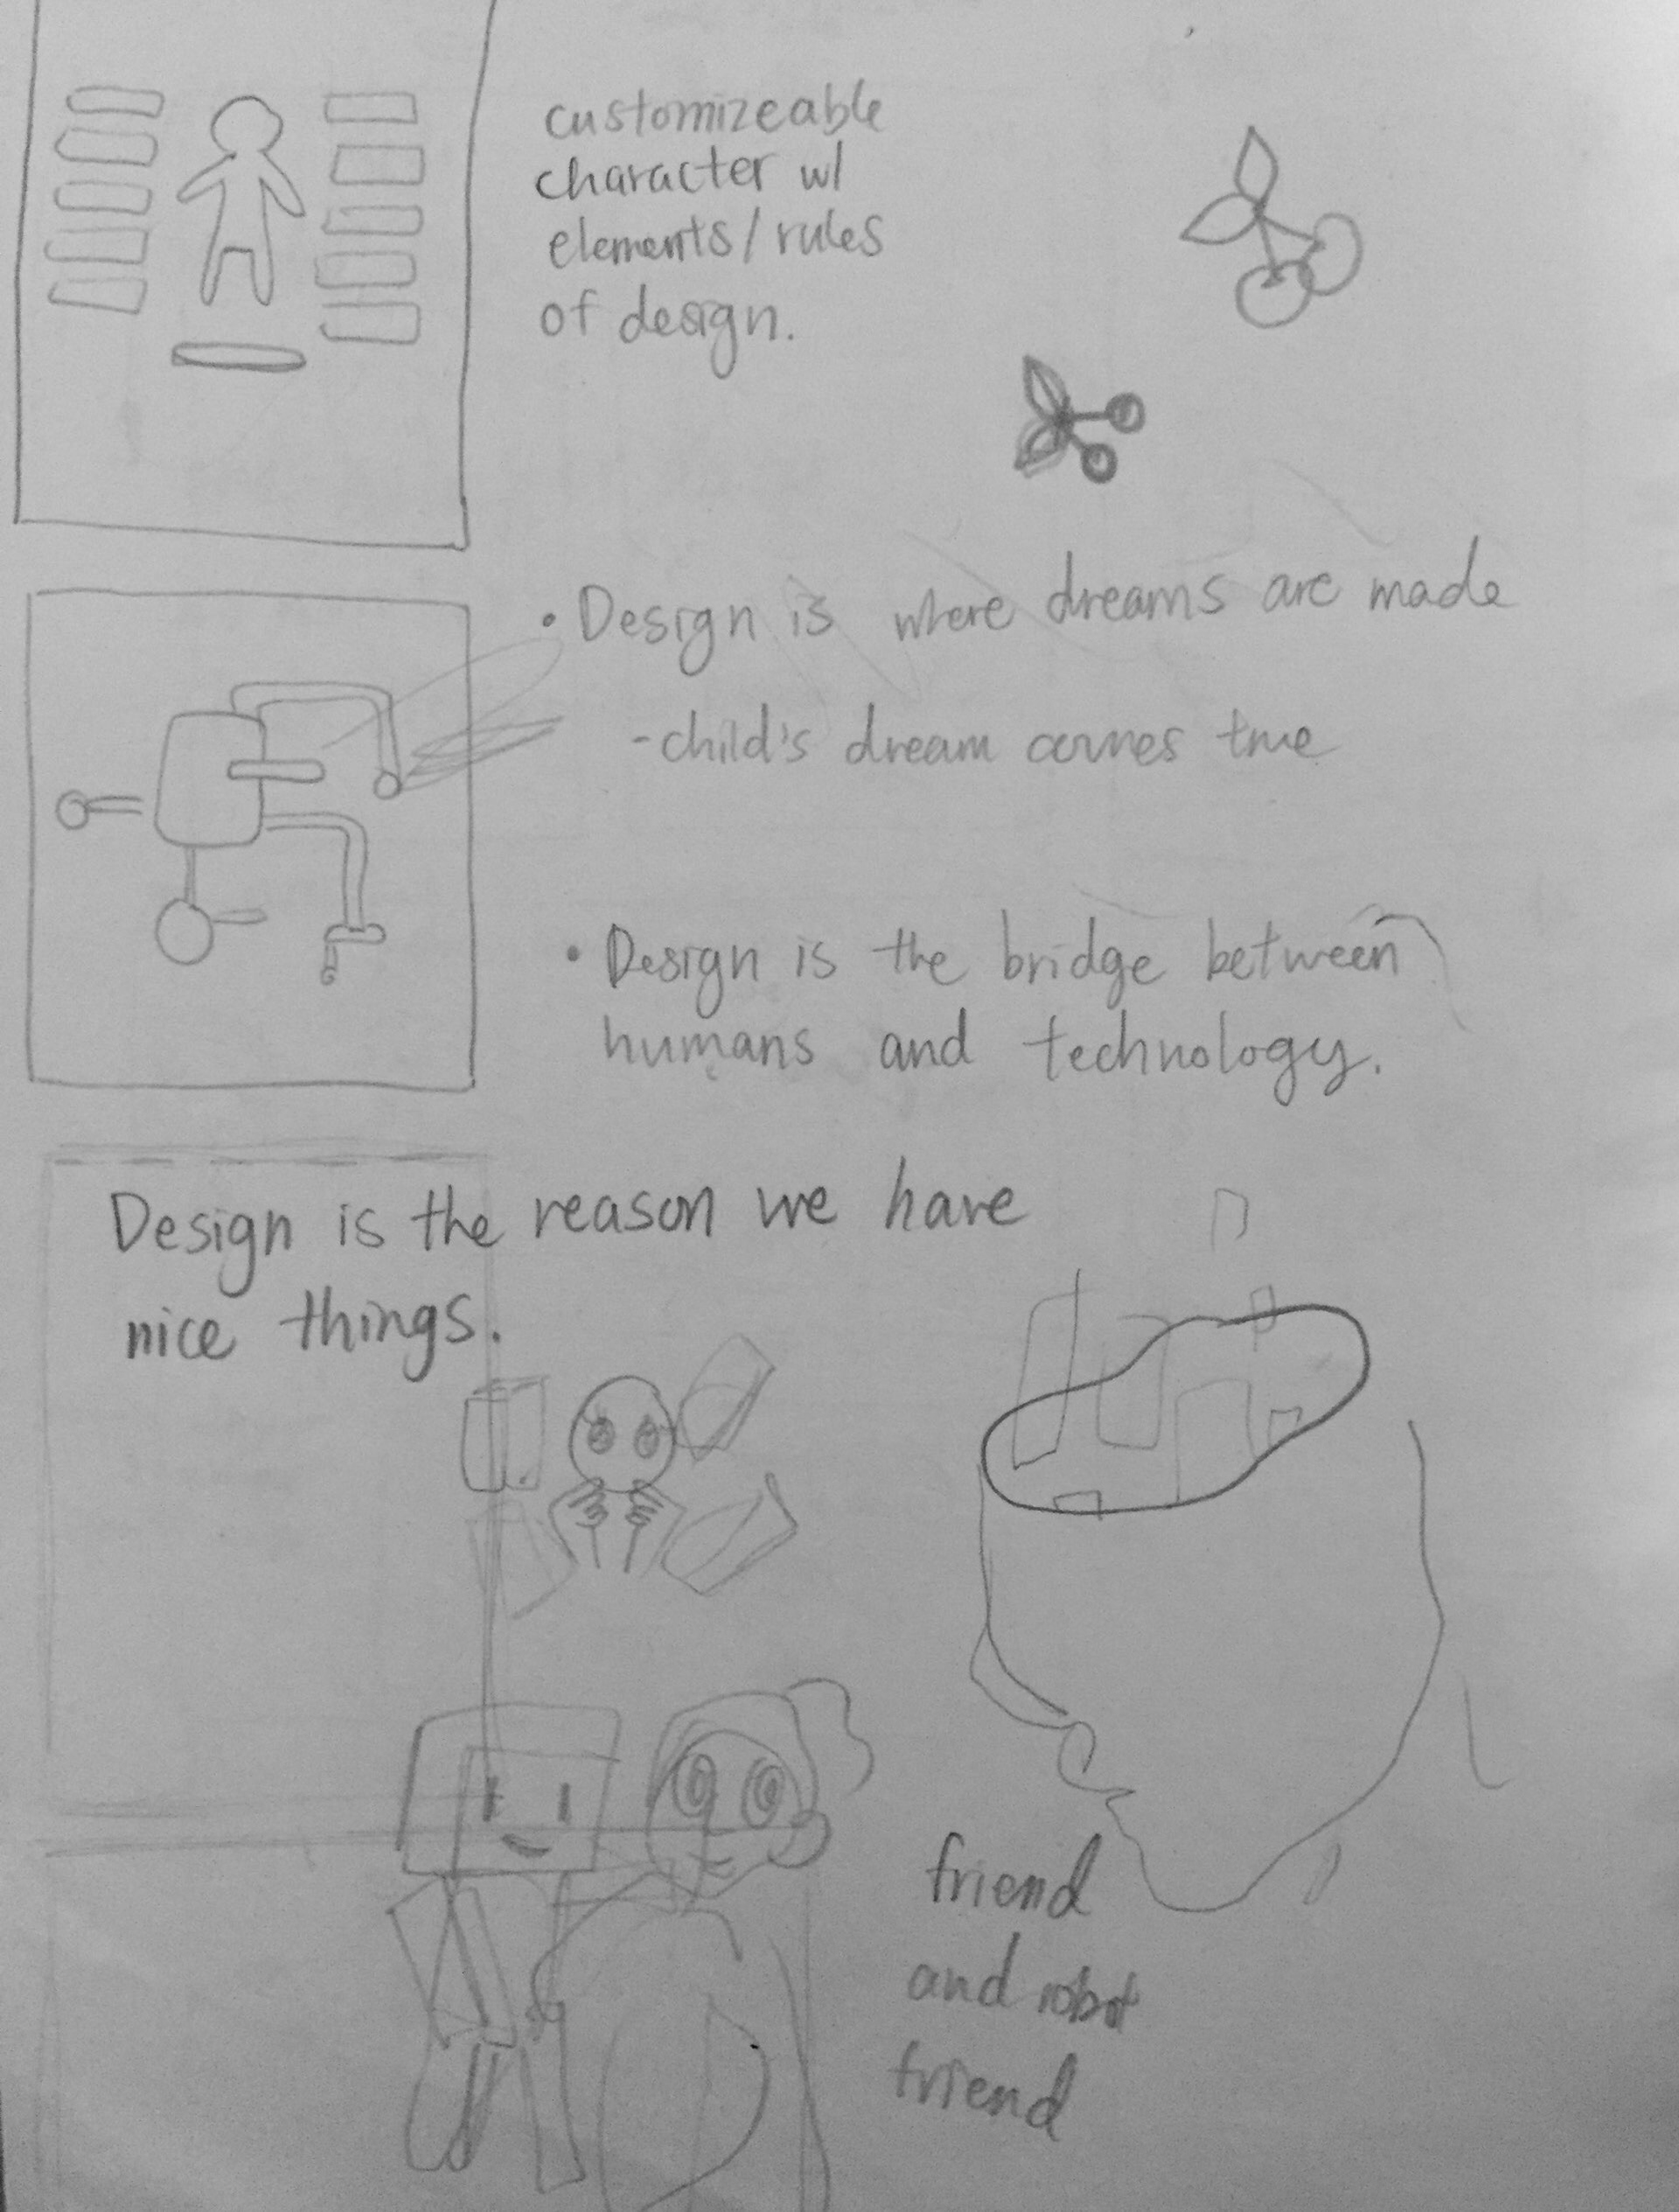 customizeable
character w/
elements/rules
of design.
• Design is where dreams are made
-child's dream comes true
• Design is the bridge between
humans and technology.
Design is the reason we have
nice things.
friend
and robot
friend